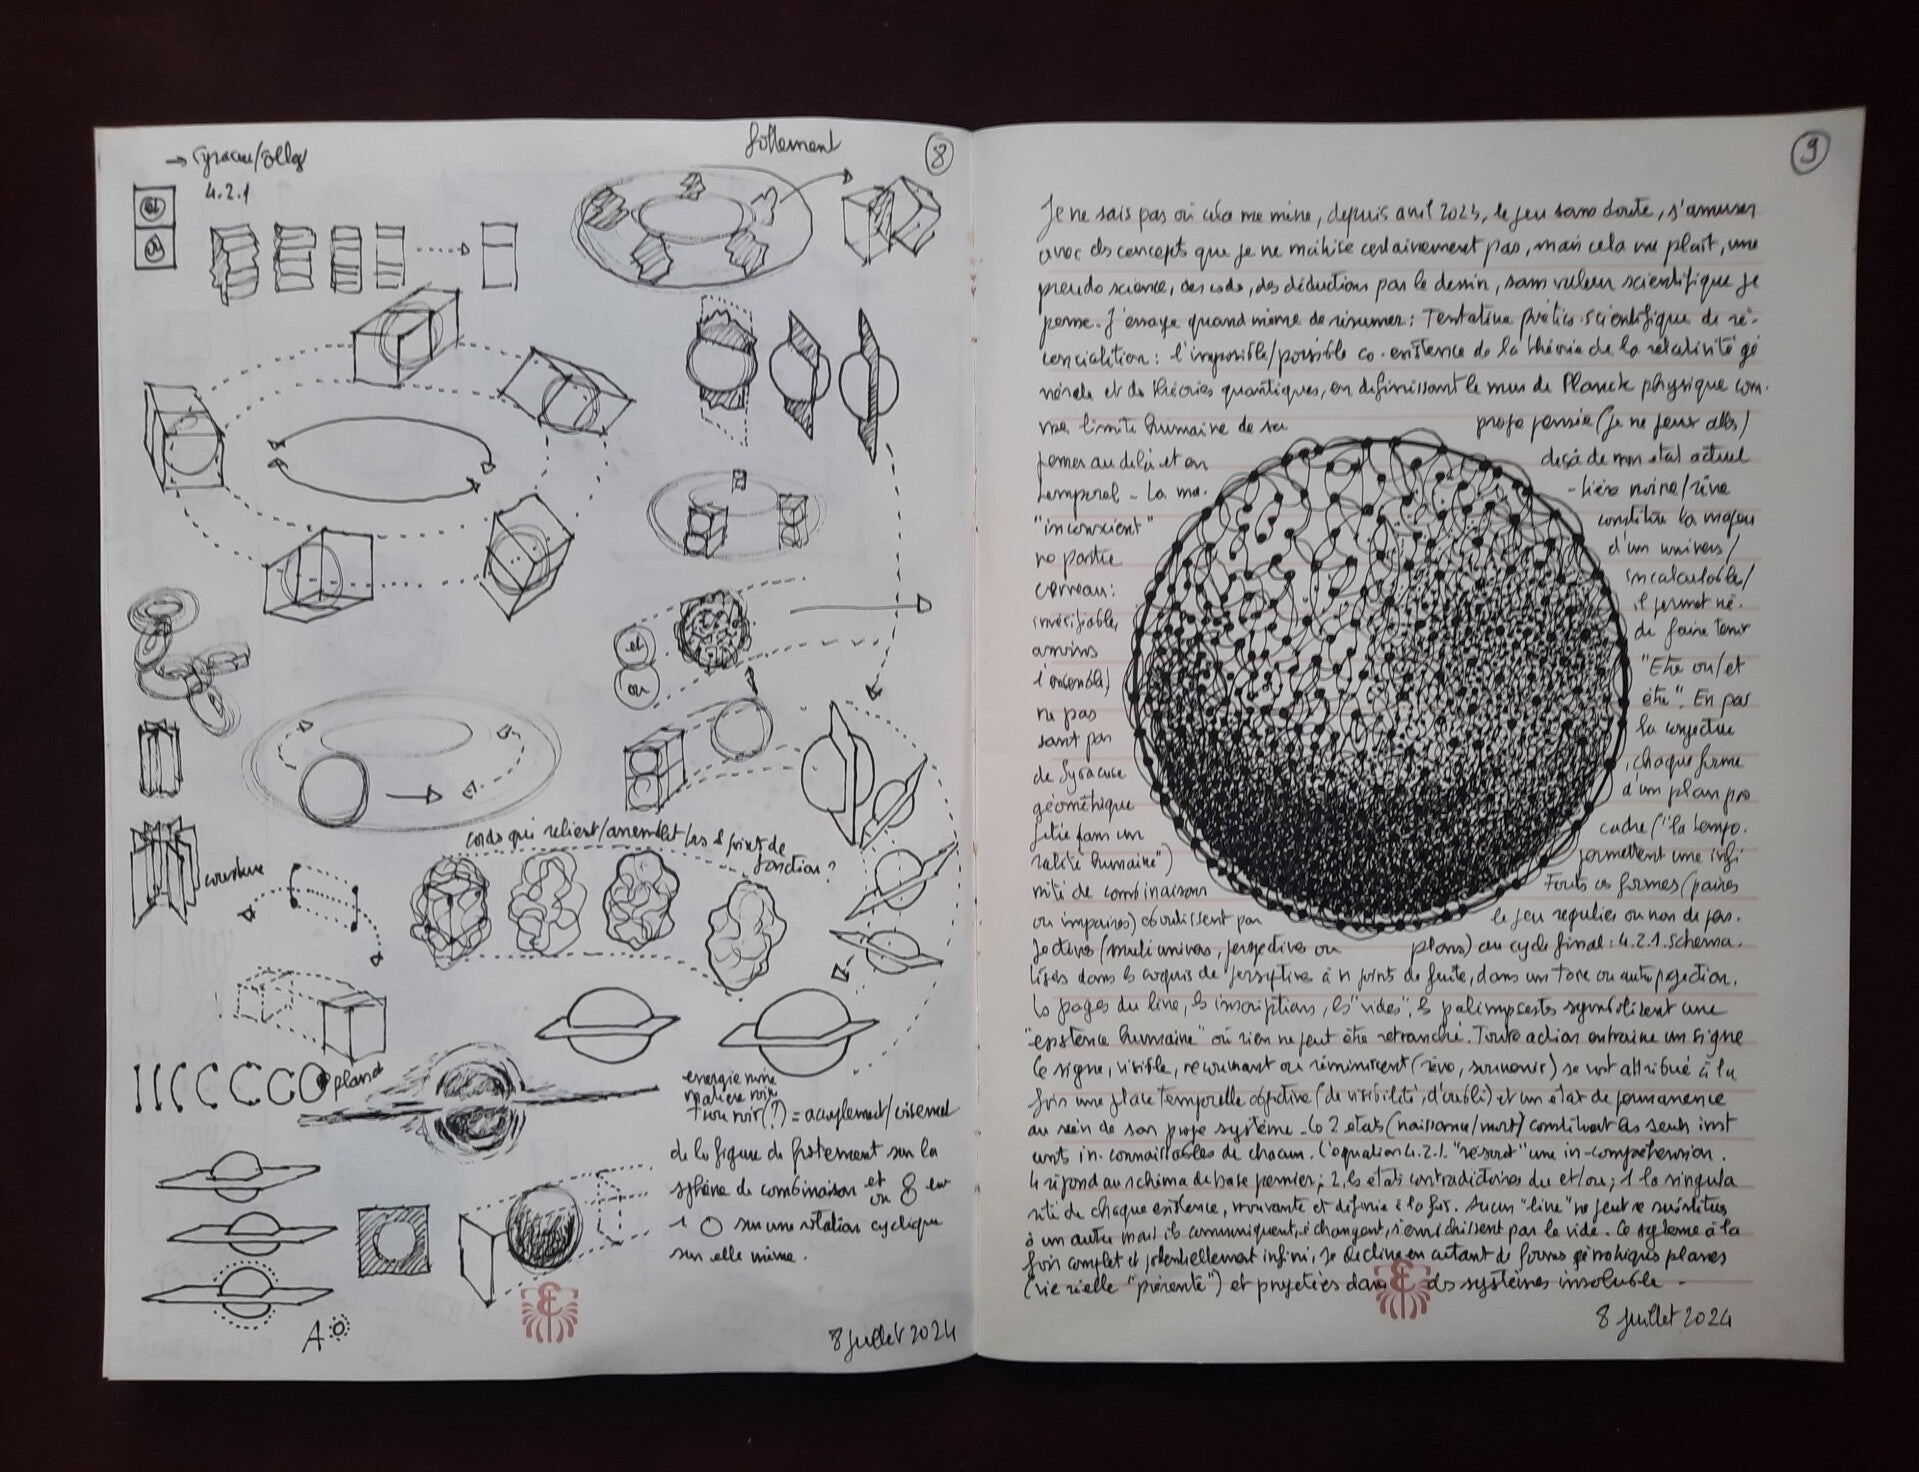 8
frôlement
→ Syracuse/
4.2.1
et
ou
et
ou
cordes qui relient/assemblent les 8 points de
fonction?
courbure
plans
énergie noire
matière noire
trou noir (?) = accouplement/croisement
de la figure de frôlement sur la
sphère de combinaison et ou 8 en
1 O sur une rotation cyclique
sur elle même.
8 juillet 2024
9
Je ne sais pas où cela me mène, depuis avril 2023, le jeu sans doute, s'amuser
avec des concepts que je ne maîtrise certainement pas, mais cela me plaît, une
pseudo science, des codes, des déductions par le dessin, sans valeur scientifique je
pense. J'essaye quand même de résumer : Tentative poético-scientifique de ré-
conciliation : l'impossible/possible co-existence de la théorie de la relativité gé
nérale et des théories quantiques, en définissant le mur de Planck physique com-
me limite humaine de sa propre pensée (je ne peux aller/
penser au delà et en deçà de mon état actuel
temporel - La ma- -tière noire/rêve
"inconscient" constitue la majeu
re partie d'un univers/
cerveau : incalculable/
invérifiable, il permet né-
amoins de faire tenir
l'ensemble, "Etre ou/et
ne pas être". En pas
sant par la conjecture
de Syracuse, chaque forme
géométrique d'un plan pro
jetée dans un cadre ("la tempo-
ralité humaine") permettent une infi
nité de combinaisons Toutes ces formes (paires
ou impaires) aboutissent par le jeu régulier ou non de pro-
jectives (multi univers, perspectives ou plans) au cycle final : 4.2.1. Schéma-
tisés dans les croquis de perspective à n points de fuite, dans un tore ou auto projection.
Les pages du livre, les inscriptions, les "vides", les palimpsestes symbolisent une
"existence humaine" où rien ne peut être retranché. Toute action entraîne un signe
Ce signe, visible, recouvrant ou réminiscent (rêve, souvenir) se voit attribué à la
fois une place temporelle objective (de visibilité, d'oubli) et un état de permanence
au sein de son propre système. Les 2 états (naissance/mort) constituent les seuls inst
ants in-connaissables de chacun. L'équation 4.2.1. "résout" une in-compréhension.
4 répond au schéma de base premier ; 2, les états contradictoires du et/ou ; 1 la singula
rité de chaque existence, mouvante et définie à la fois. Aucun "livre" ne peut se substituer
à un autre mais ils communiquent, échangent, s'enrichissent par le vide. Ce système à la
fois complet et potentiellement infini, se décline en autant de formes géométriques planes
(vie réelle "présente") et projetées dans des systèmes insoluble -
8 juillet 2024